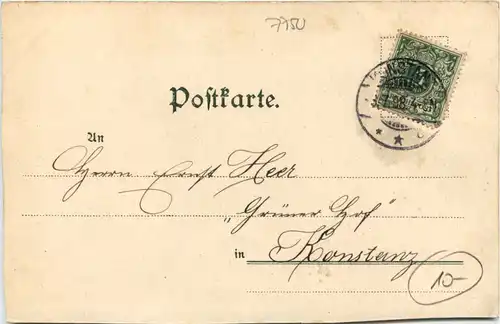 7150
Postkarte.
An
Herrn Ernst Heer
„Grüner Hof"
in Konstanz
10-